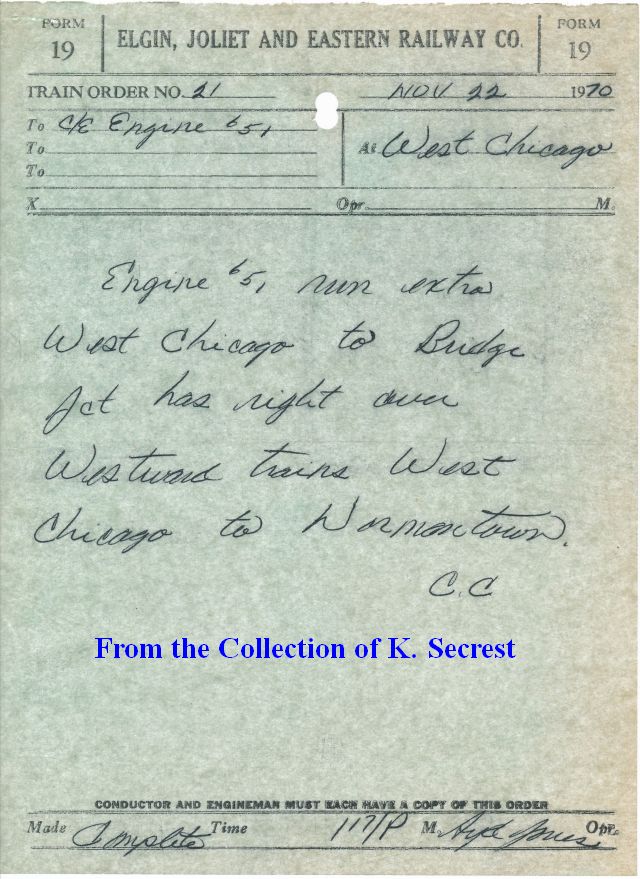 FORM 19 ELGIN, JOLIET AND EASTERN RAILWAY CO. FORM 19
TRAIN ORDER NO. 21 NOV 22 1970
To C/E Engine 651 At West Chicago
To
To
X Opr. M.
Engine 651 run extra
West Chicago to Bridge
Jct has right over
Westward trains West
Chicago to Normantown.
C.C
From the Collection of K. Secrest
CONDUCTOR AND ENGINEMAN MUST EACH HAVE A COPY OF THIS ORDER
Made Complete Time 117P M. Jones Opr.